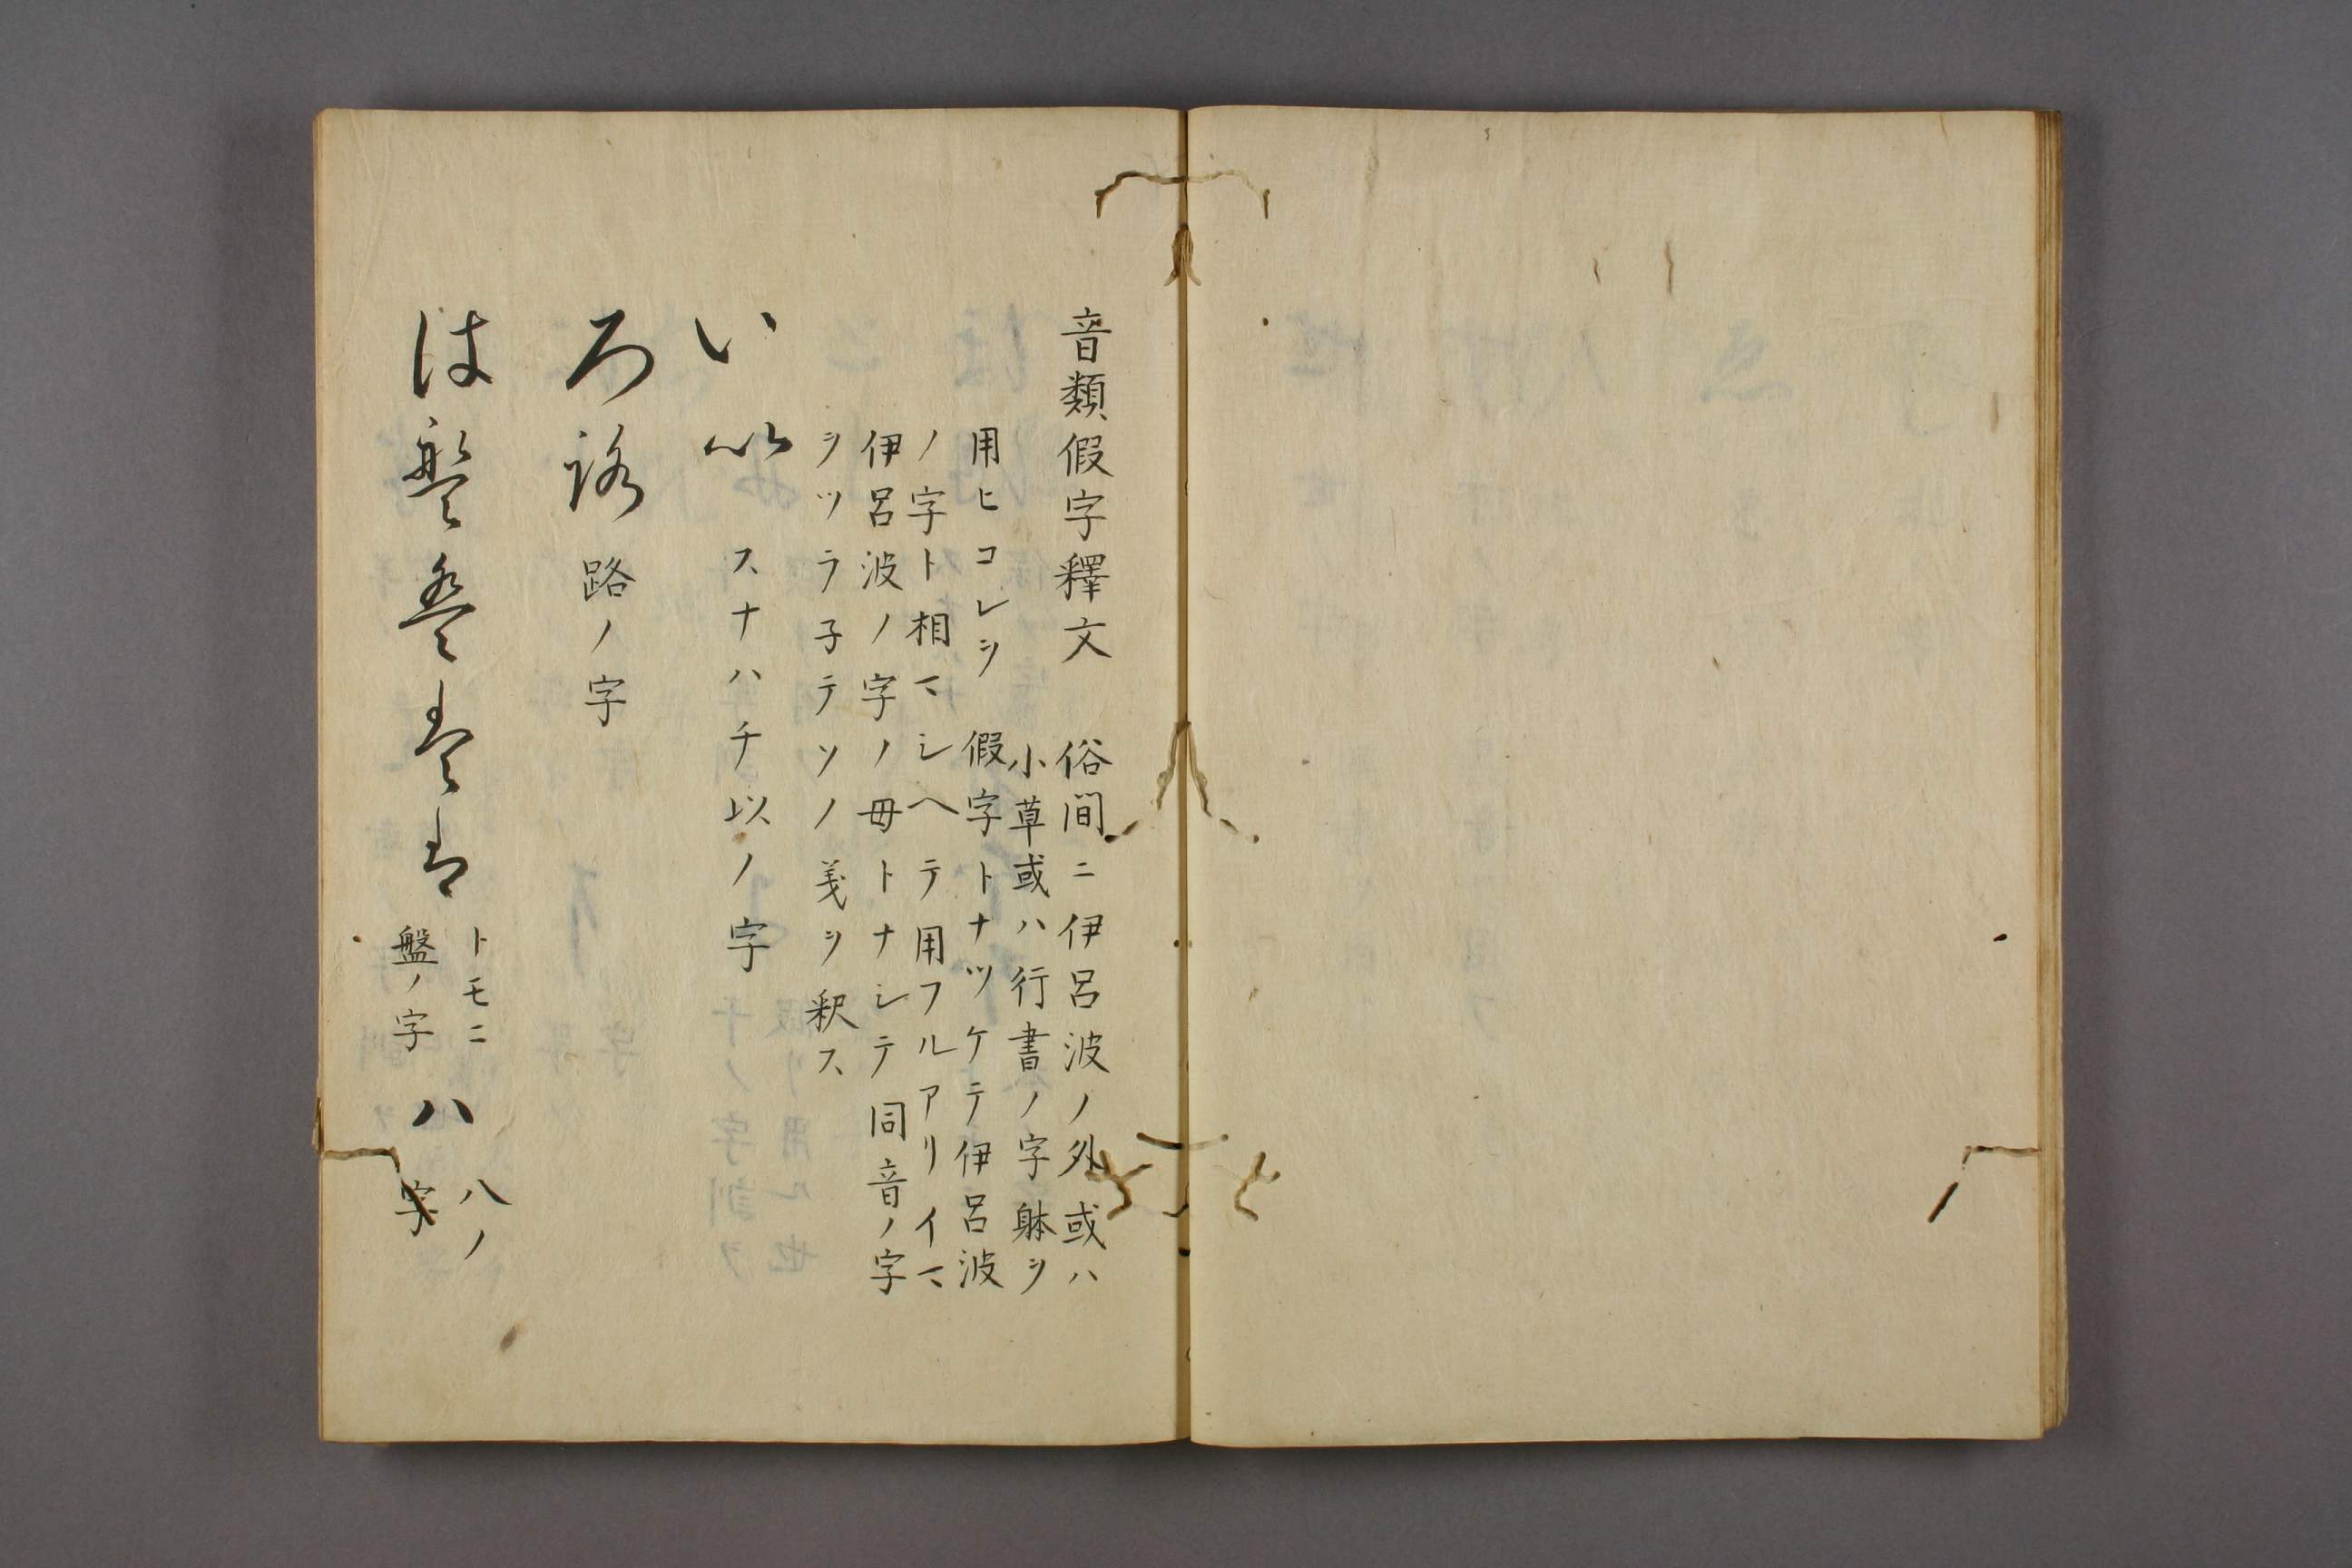 音類假字釋文　俗間ニ伊呂波ノ外或ハ
小草或ハ行書ノ字躰ヲ
用ヒコレヲ　假字トナツケテ伊呂波
ノ字ト相マシヘテ用フルアリイマ
伊呂波ノ字ノ母トナシテ同音ノ字
ヲツラ子テソノ義ヲ釈ス
い　以　スナハチ以ノ字
ろ　路　路ノ字
は　盤　盤　盤　トモニ
盤ノ字
ハ　八ノ
字